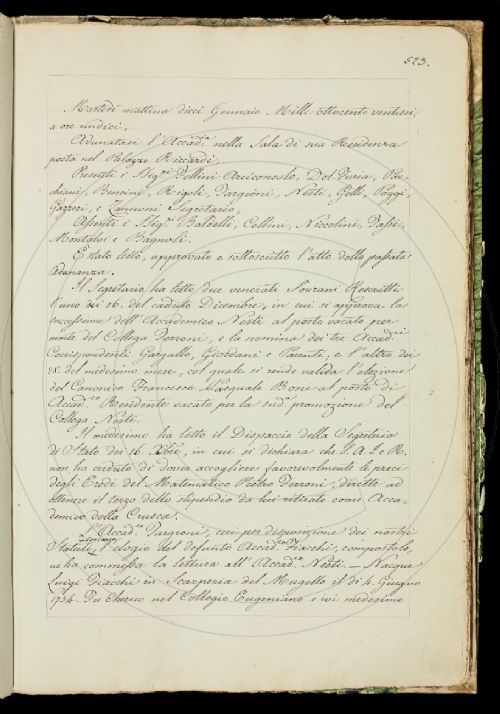 523.
Martedì mattina dieci Gennaio Mille ottocento ventisei,
a ore undici,
Adunatasi l'Accad.a nella Sala di sua Residenza
posta nel Palazzo Riccardi,
Presenti i Sig.ri Pellini Arciconsolo, Del Furia,
Bencini, Rigoli, Targioni, Nesti, Gelli, Poggi,
Gazzeri, e Zannoni Segretario,
Assenti i Sig.ri Baldelli, Collini, Niccolini,
Montalvi e Bagnoli.
È stato letto, approvato e sottoscritto l'atto della passata
Adunanza.
Il Segretario ha letto due venerati Sovrani Rescritti
l'uno dei 16. del caduto Dicembre, in cui si approva la
successione dell'Accademico Nesti al posto vacato per
morte del Collega Ferroni, e la nomina dei tre Accad.ci
Corrispondenti Gargallo, Giordani e Parenti; e l'altro dei
28. del medesimo mese, col quale si rende valida l'elezione
del Canonico Francesco Pasquale Boni al posto di
Accad.co Residente vacato per la sud.a promozione del
Collega Nesti.
Il medesimo ha letto il Dispaccio della Segreteria
di Stato dei 16. Xbre, in cui si dichiara che S. A. I. e R.
non ha creduto di dover accogliere favorevolmente le preci
degli Eredi del Matematico Pietro Ferroni, dirette ad
ottenere il terzo dello stipendio da lui ritirato come Acca-
demico della Crusca.
L'Accad.co Targioni, cui per disposizione dei nostri
Statuti, l'elogio del defunto Accad.co Fiacchi, composto,
ne ha commessa la lettura all'Accad.co Nesti. — Nacque
Luigi Fiacchi in Scarperia del Mugello il dì 4. Giugno
1754. Fu Cherico nel Collegio Eugeniano e ivi medesimo